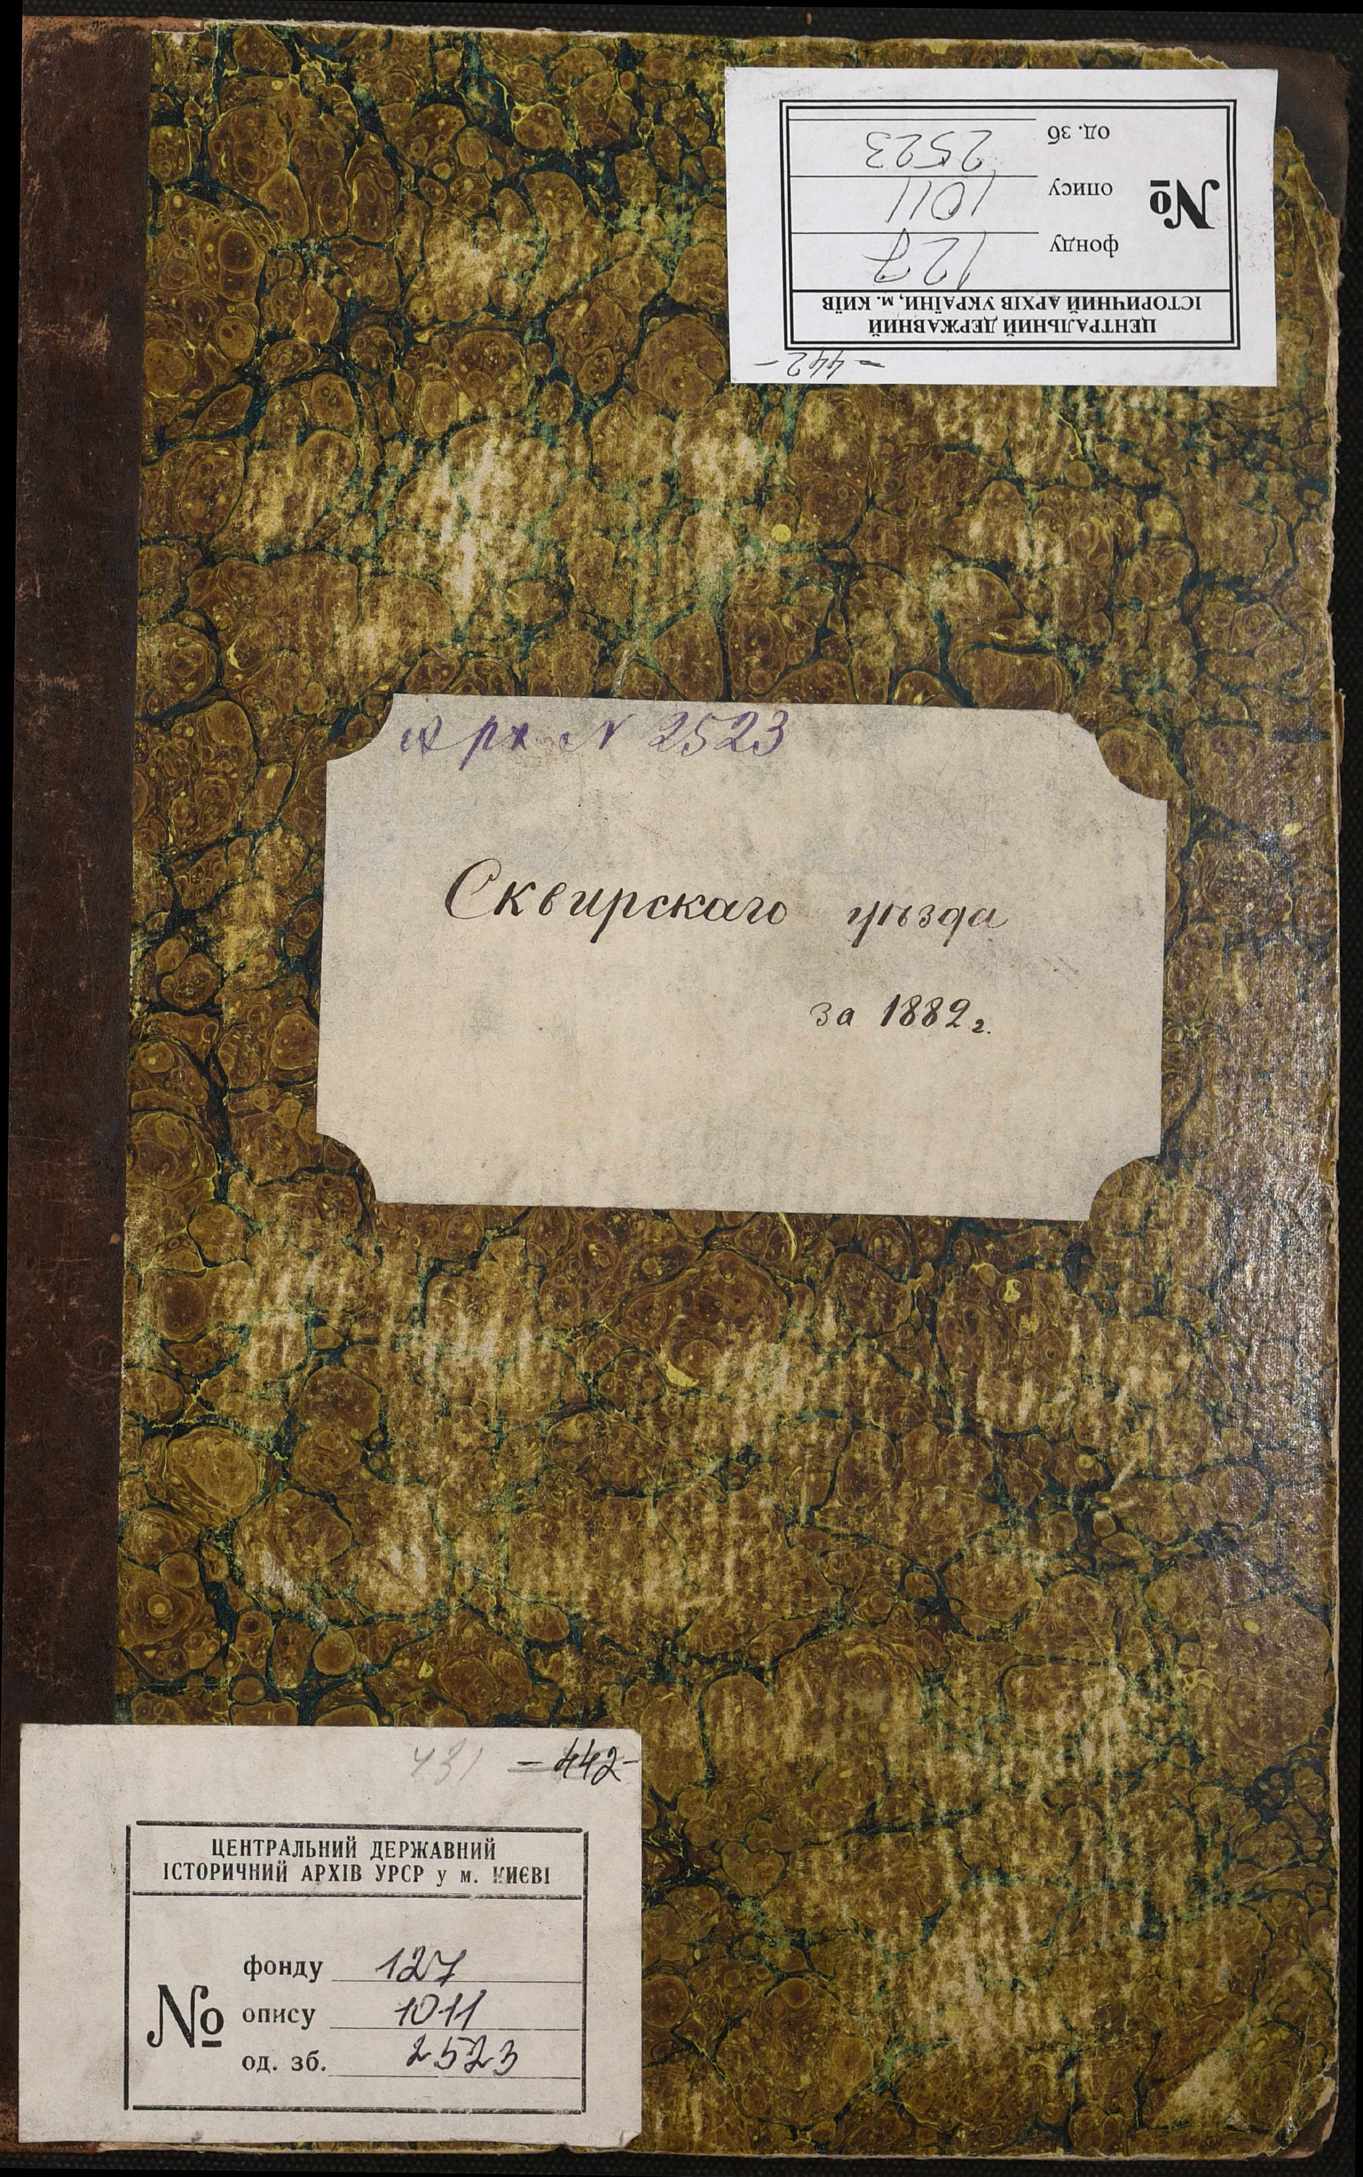 ЦЕНТРАЛЬНИЙ ДЕРЖАВНИЙ
ІСТОРИЧНИЙ АРХІВ УКРАЇНИ, м. КИЇВ
№
фонду 127
опису 1011
од. зб 2523
-442-
арх № 2523
Сквирскаго уѣзда
за 1882 г.
431 -442-
ЦЕНТРАЛЬНИЙ ДЕРЖАВНИЙ
ІСТОРИЧНИЙ АРХІВ УРСР у м. КИЄВІ
№
фонду 127
опису 1011
од. зб. 2523